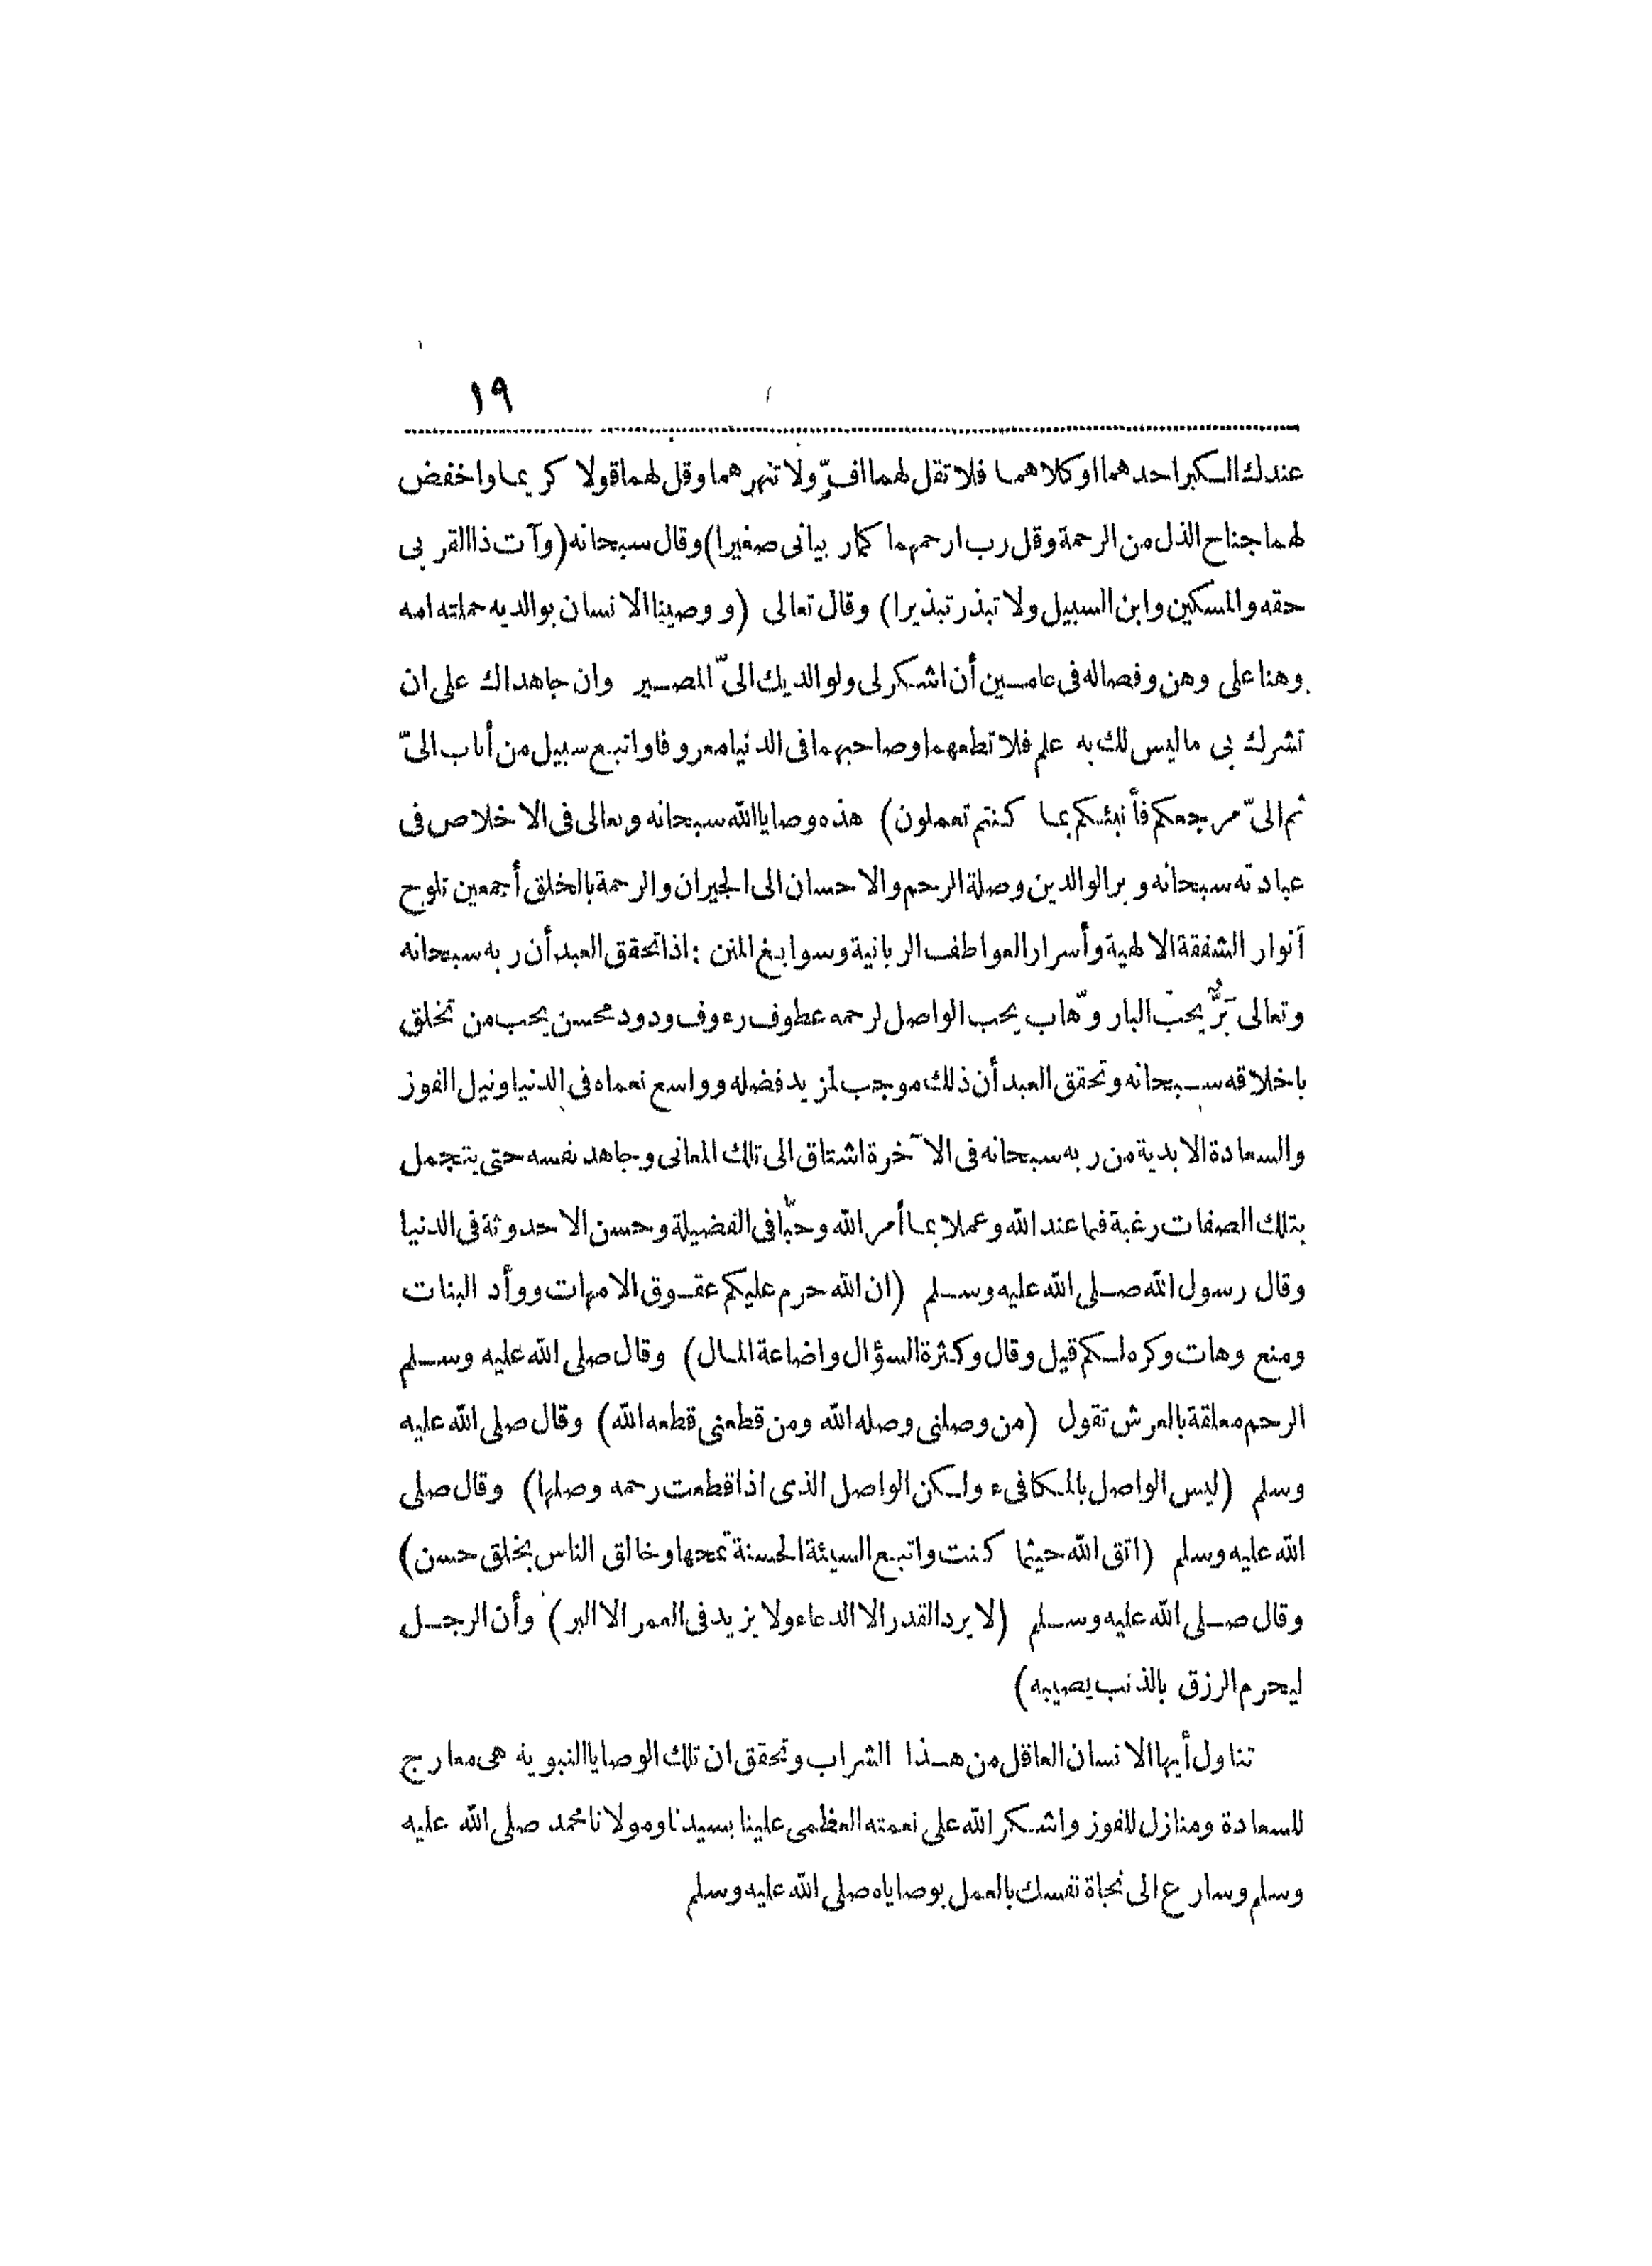 ١٩
عندك الكبر احدهما او كلاهما فلا تقل لهما افّ ولا تنهرهما وقل لهما قولا كريما واخفض
لهما جناح الذل من الرحمة وقل رب ارحمهما كما ربيانى صغيرا) وقال سبحانه (وآت ذا القربى
حقه والمسكين وابن السبيل ولا تبذر تبذيرا) وقال تعالى (ووصينا الانسان بوالديه حملته امه
وهنا على وهن وفصاله فى عامين أن اشكر لى ولوالديك الىّ المصير وان جاهداك على ان
تشرك بى ما ليس لك به علم فلا تطعهما وصاحبهما فى الدنيا معروفا واتبع سبيل من أناب الىّ
ثم الىّ مرجعكم فأنبئكم بما كنتم تعملون) هذه وصايا الله سبحانه وتعالى فى الاخلاص فى
عبادته سبحانه وبر الوالدين وصلة الرحم والاحسان الى الجيران والرحمة بالخلق أجمعين تلوح
أنوار الشفقة الالهية وأسرار العواطف الربانية وسوابغ المنن : اذا تحقق العبد أن ربه سبحانه
وتعالى بَرٌّ يحبّ البار وهّاب يحب الواصل لرحمه عطوف رءوف ودود محسن يحب من تخلق
باخلاقه سبحانه وتحقق العبد أن ذلك موجب لمزيد فضله وواسع نعماه فى الدنيا ونيل الفوز
والسعادة الابدية من ربه سبحانه فى الآخرة اشتاق الى تلك المعانى وجاهد نفسه حتى يتجمل
بتلك الصفات رغبة فيما عند الله وعملا بما أمر الله وحبّا فى الفضيلة وحسن الاحدوثة فى الدنيا
وقال رسول الله صلى الله عليه وسلم (ان الله حرم عليكم عقوق الامهات ووأد البنات
ومنع وهات وكره لكم قيل وقال وكثرة السؤال واضاعة المال) وقال صلى الله عليه وسلم
الرحم معلقة بالعرش تقول (من وصلنى وصله الله ومن قطعنى قطعه الله) وقال صلى الله عليه
وسلم (ليس الواصل بالمكافىء ولكن الواصل الذى اذا قطعت رحمه وصلها) وقال صلى
الله عليه وسلم (اتق الله حيثما كنت واتبع السيئة الحسنة تمحها وخالق الناس بخلق حسن)
وقال صلى الله عليه وسلم (لا يرد القدر الا الدعاء ولا يزيد فى العمر الا البر) وأن الرجل
ليحرم الرزق بالذنب يصيبه)
تناول أيها الانسان العاقل من هذا الشراب وتحقق ان تلك الوصايا النبوية هى معارج
للسعادة ومنازل للفوز واشكر الله على نعمته العظمى علينا بسيدنا ومولانا محمد صلى الله عليه
وسلم وسارع الى نجاة نفسك بالعمل بوصاياه صلى الله عليه وسلم